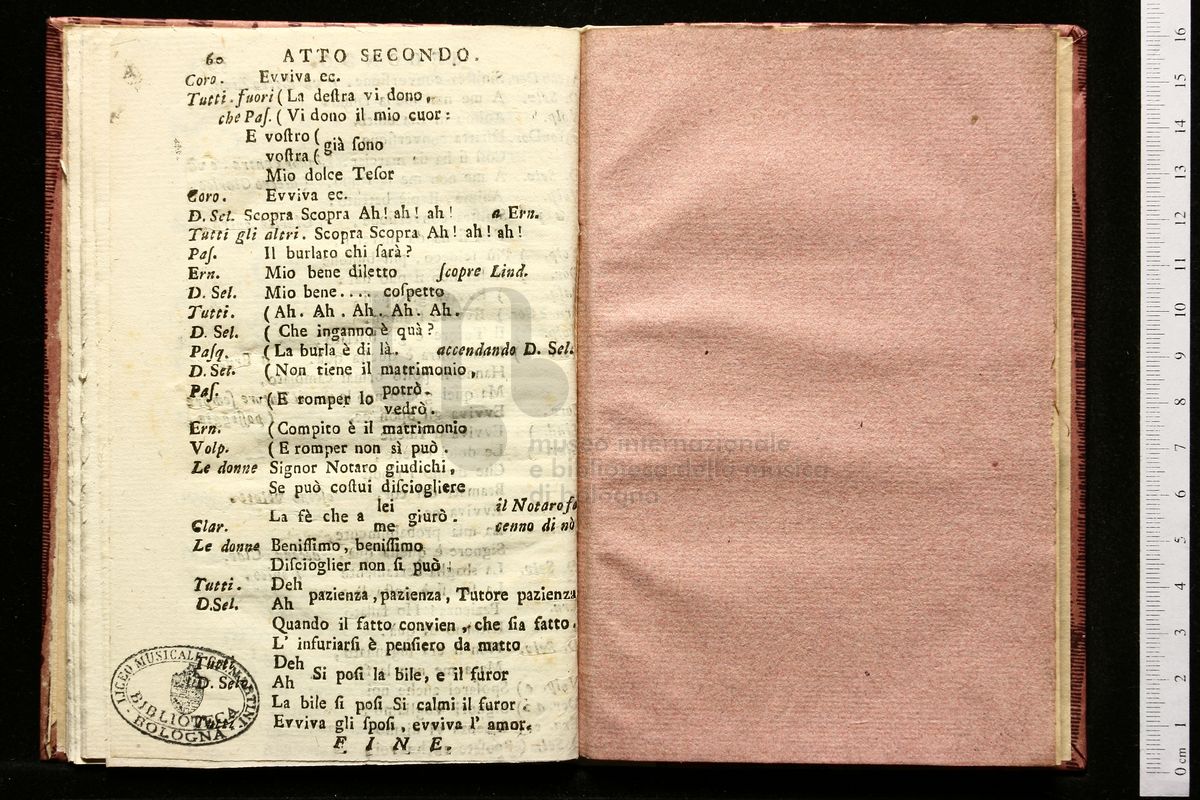 60 ATTO SECONDO.
Coro. Evviva ec.
Tutti fuori ( La deſtra vi dono,
che Paſ. ( Vi dono il mio cuor:
E voſtro (
già ſono
voſtra (
Mio dolce Teſor
Coro. Evviva ec.
D. Sel. Scopra Scopra Ah! ah! ah! a Ern.
Tutti gli altri. Scopra Scopra Ah! ah! ah!
Paſ. Il burlato chi ſarà?
Ern. Mio bene diletto ſcopre Lind.
D. Sel. Mio bene.... coſpetto
Tutti. ( Ah. Ah. Ah. Ah. Ah.
D. Sel. ( Che inganno è quà?
Paſq. ( La burla è di là. accendando D. Sel.
D. Sel. ( Non tiene il matrimonio,
Paſ. ( E romper lo potrò.
vedrò.
Ern. ( Compito è il matrimonio
Volp. ( E romper non sì può.
Le donne Signor Notaro giudichi,
Se può coſtui diſciogliere
lei il Notaro fa
La fè che a giurò.
Clar. me cenno di nò
Le donne Beniſſimo, beniſſimo
Diſcioglier non ſi può:
Tutti. Deh
pazienza, pazienza, Tutore pazienza
D.Sel. Ah
Quando il fatto convien, che ſia fatto.
L' infuriarſi è penſiero da matto
Tutti Deh
Si poſi la bile, e il furor
D. Sel. Ah
La bile ſi poſi Si calmi il furor
Tutti Evviva gli ſpoſi, evviva l' amor.
FINE.
LICEO MUSICALE MARTINI
BIBLIOTECA
BOLOGNA
museo internazionale
e biblioteca della musica
di bologna
0 cm 1 2 3 4 5 6 7 8 9 10 11 12 13 14 15 16